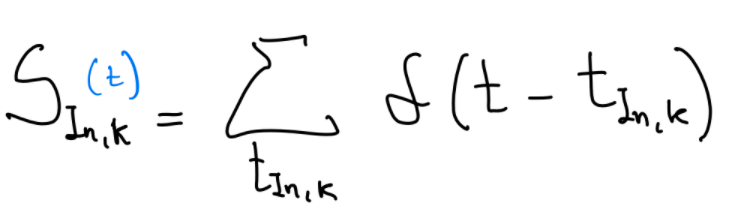 S_{In,k}^{(t)} = \sum_{t_{In,k}} δ(t - t_{In,k})